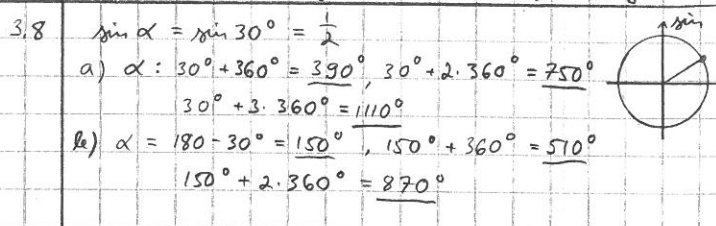 3.8 sin α = sin 30° = 1/2
sin
a) α: 30° + 360° = 390°, 30° + 2·360° = 750°
30° + 3·360° = 1110°
b) α = 180 - 30° = 150°, 150° + 360° = 510°
150° + 2·360° = 870°